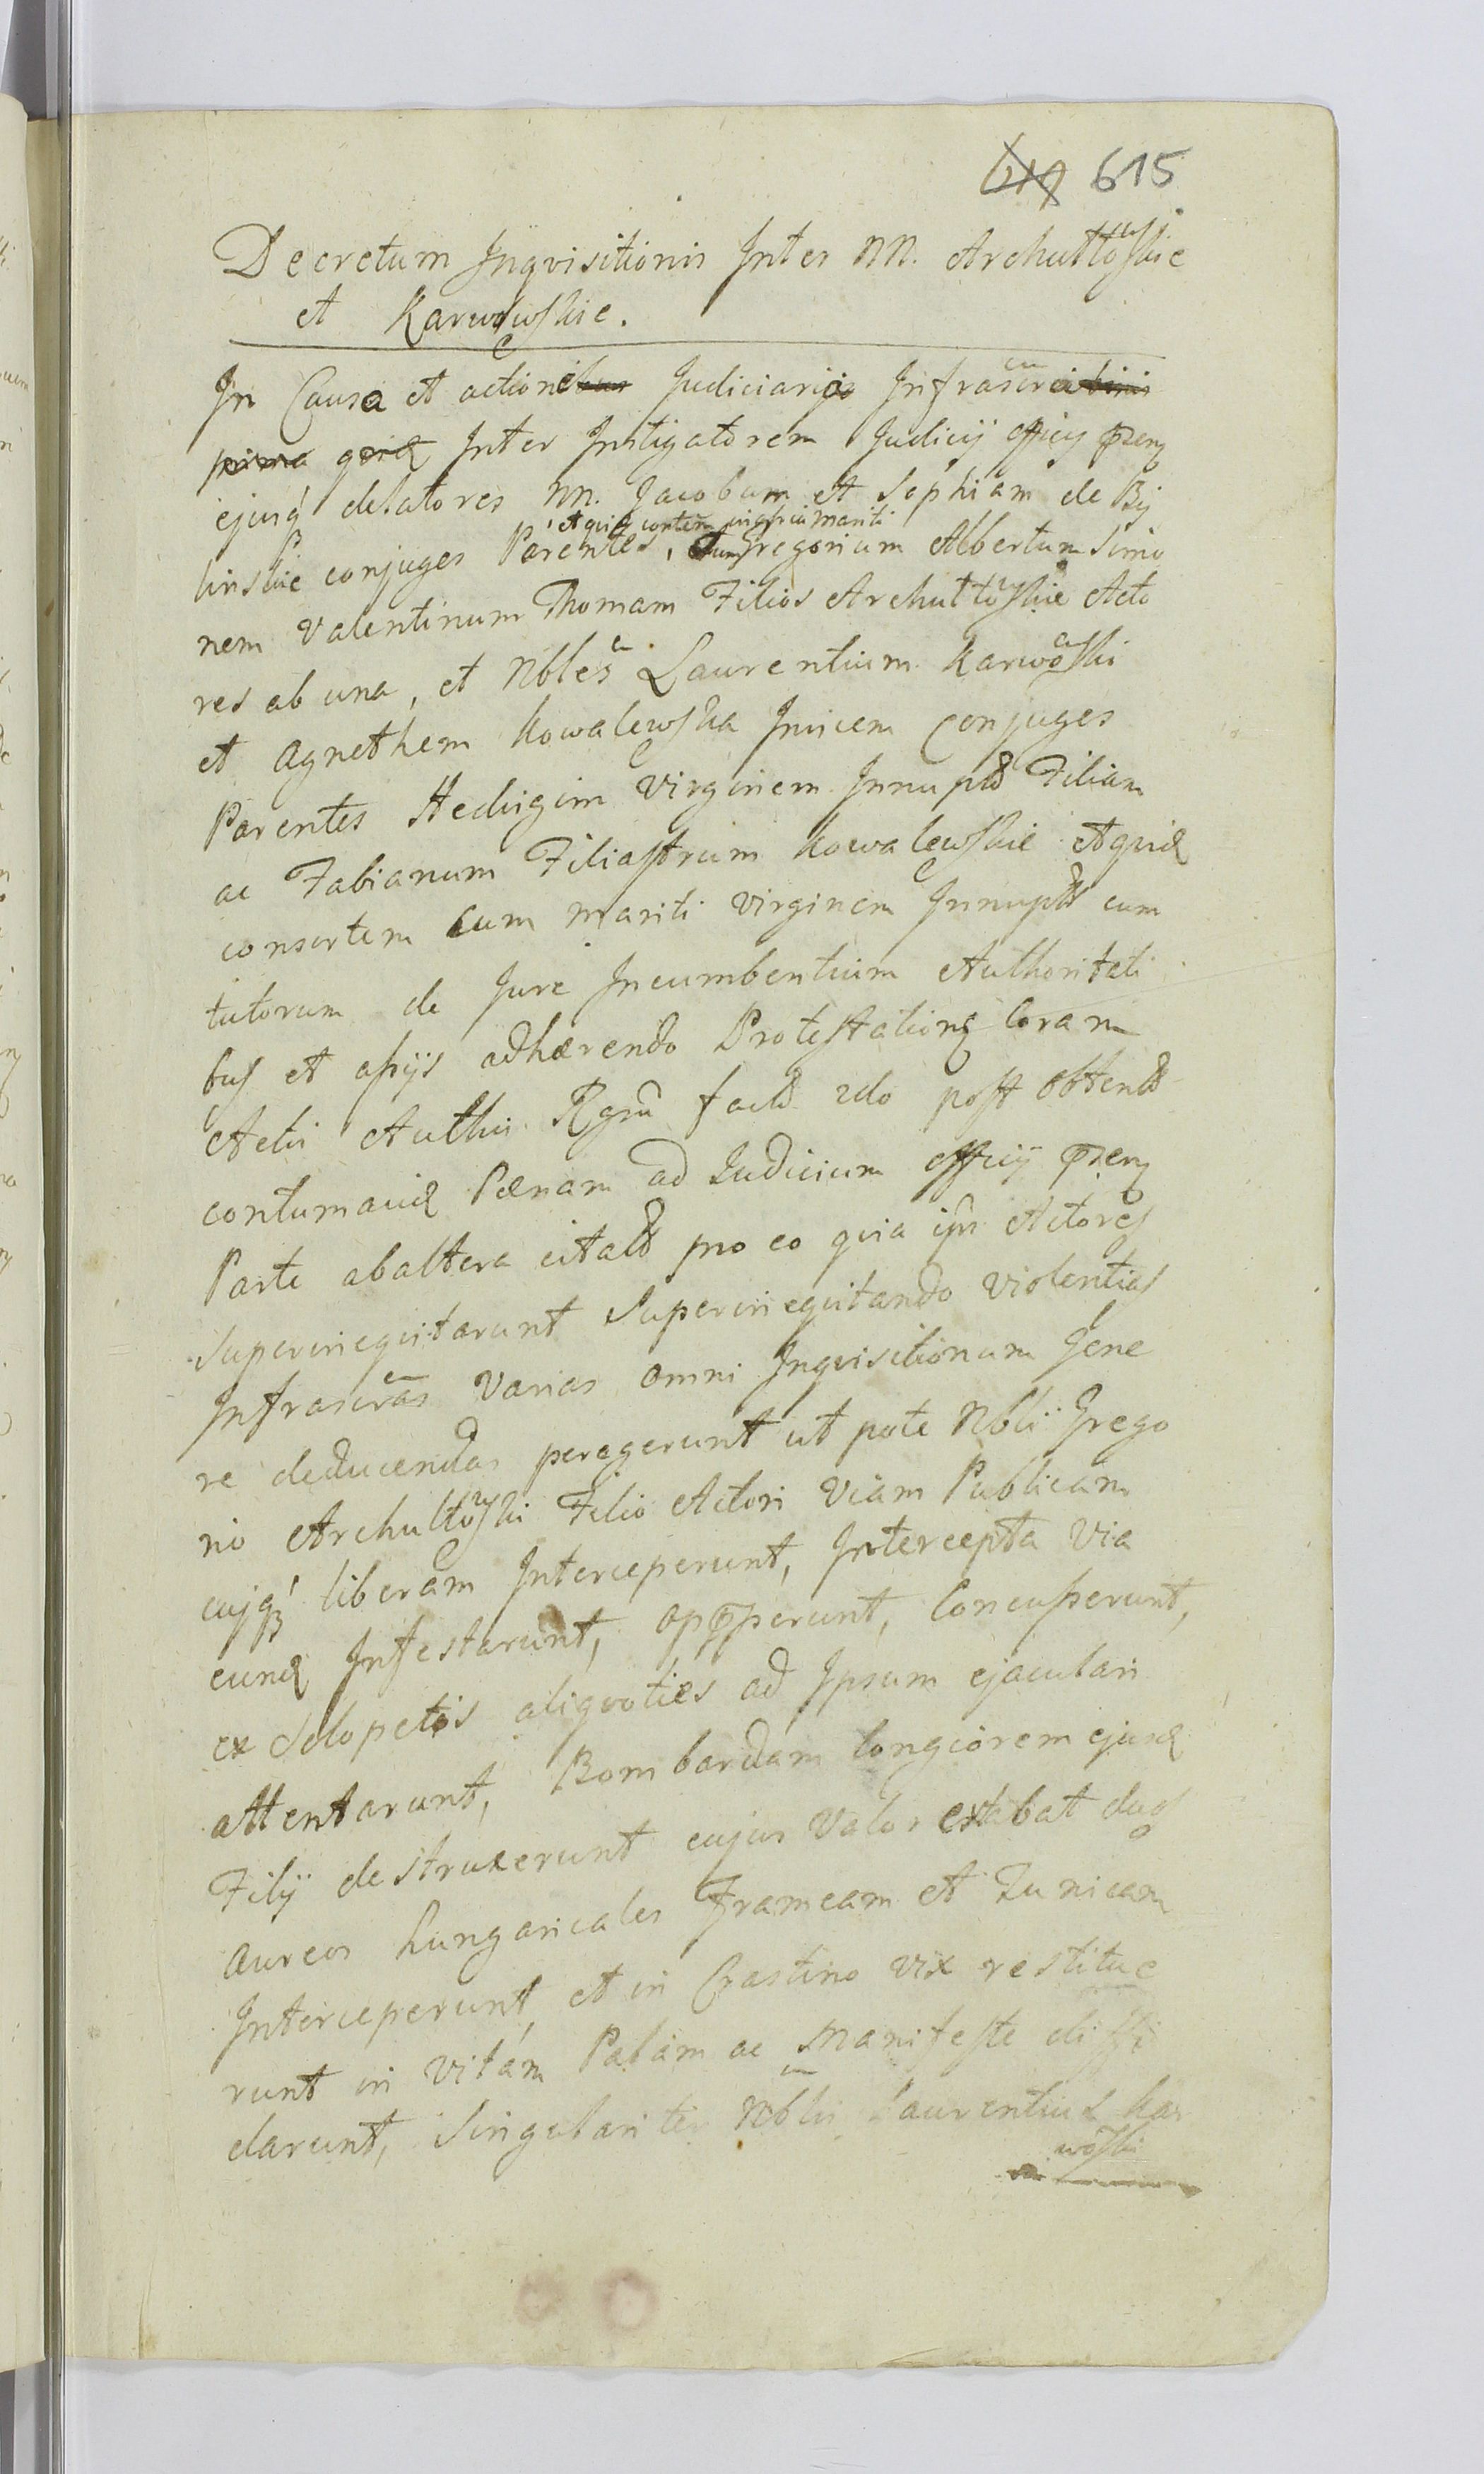 615
Decretum Inqvisitionis Inter NN. Archuttowskie
et Karwowskie.
In Causa et actione Judiciaria Infrascra
Inter Instigatorem Judicij officij pnsen
ejusq delatores NN. Jacobum et Sophiam de By
linskie conjuges Parentes, tum Gregorium Albertum Simo
nem Valentinum Thomam Filios Archuttowskie Acto
res ab una, et Nbles Laurentium Karwowski
et Agnethem Kowalewska Invicem Conjuges
Parentes Hedvigim Virginem Innuptam Filiam
ac Fabianum Filiastrum Kowalewskie et quid
consortem cum mariti virginem Innuptam cum
tutorum de Jure Incumbentium Authoritati
bus et assijs adhærendo Protestationi Coram
Actis Authis Rgni fact 2do post obtent
contumacia Pænam ad Judicium officij pnsen
Parte ab altera citatos pro eo qvia ipsi Actores
Superineqvitarunt Superineqvitando violentias
Infrascras varias omni Inqvisitionum Gene
re deducendas peregerunt ut pote Nbli Grego
rio Archuttowski Filio Actori viam Publicam
cuiq liberam Interceperunt, Intercepta via
eund Infestarunt, oppresserunt, Concusserunt,
ex Sclopetis aliqvoties ad Ipsum ejaculari
attentarunt, Bombardam longiorem ejusd
Filij destruxerunt cujus valor extabat duos
aureos hungaricales Frameam et Tunicam
Interceperunt, et in Crastino vix restitue
runt in vitam Palam ac manifeste diffi
darunt, Singulariter Nblis Laurentius Kar
wowski